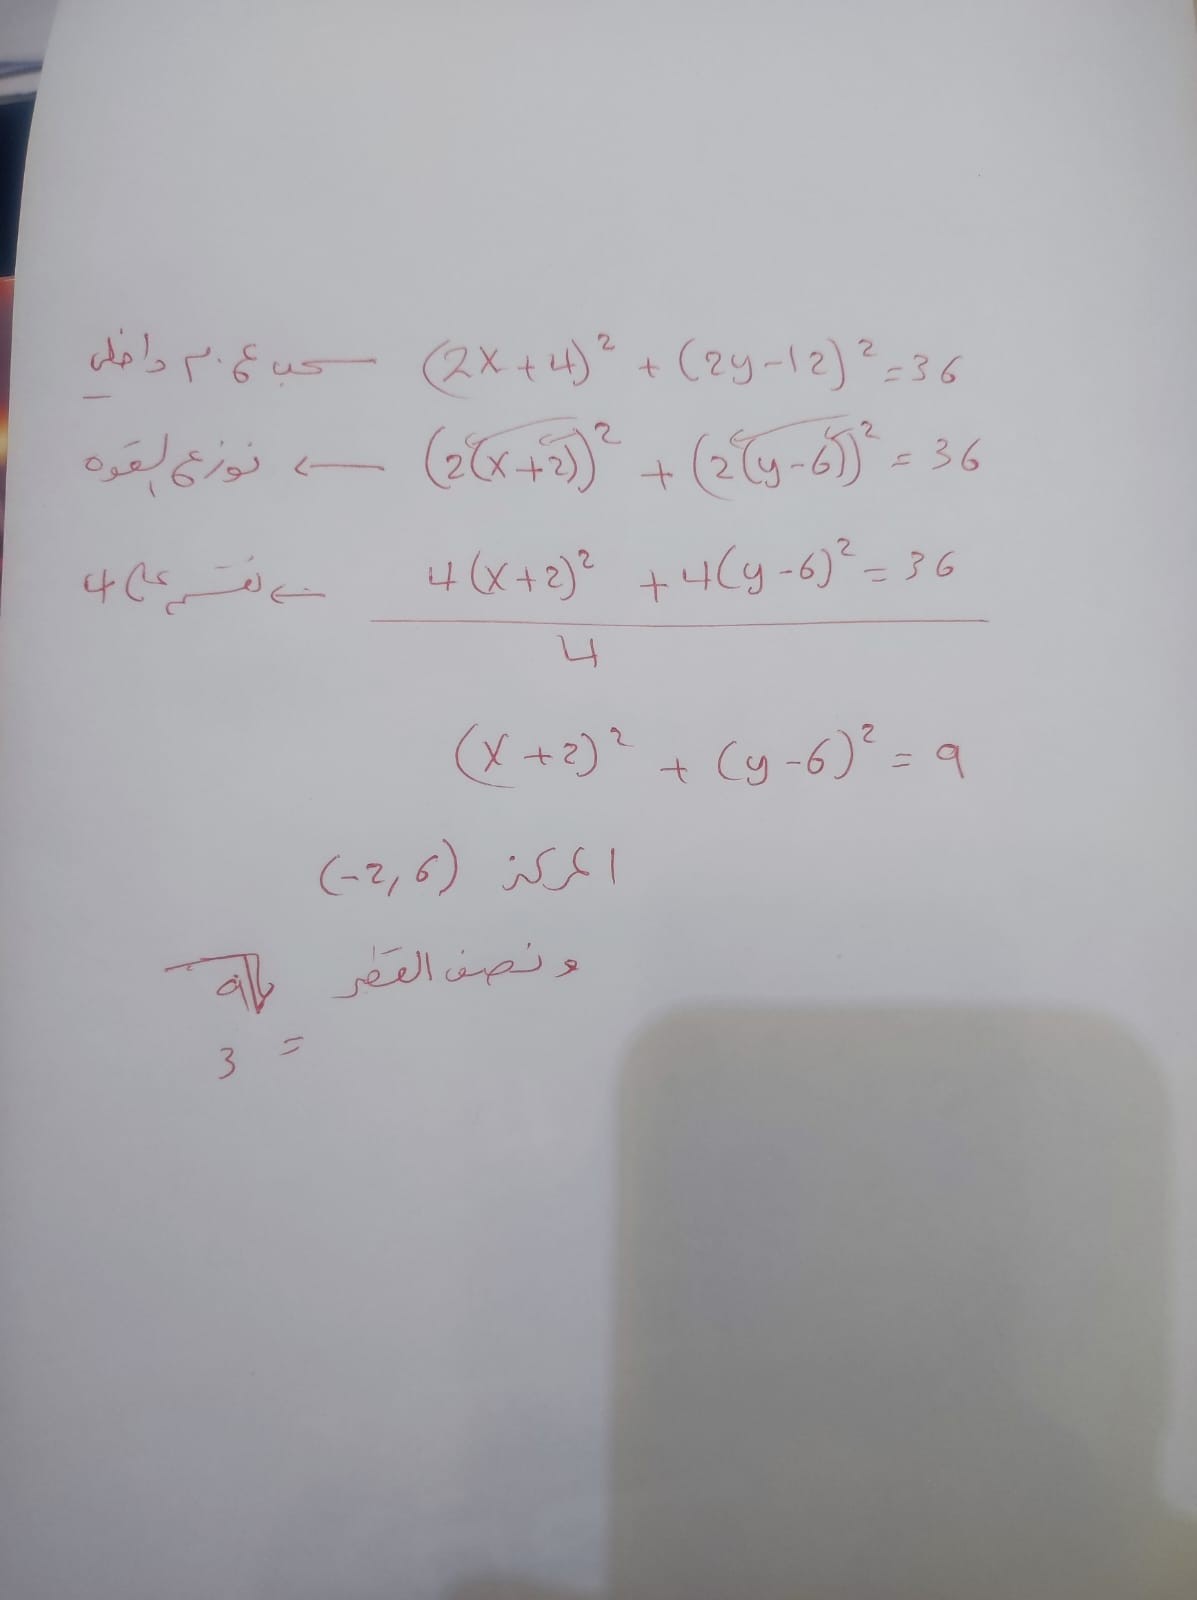 (2x+4)² + (2y-12)² = 36 ← سحب ع.م داخلي
(2(x+2))² + (2(y-6))² = 36 ← نوزع القوه
4(x+2)² + 4(y-6)² = 36 ← نقسم على 4
4
(x+2)² + (y-6)² = 9
المركز (-2,6)
و نصف القطر √9
= 3